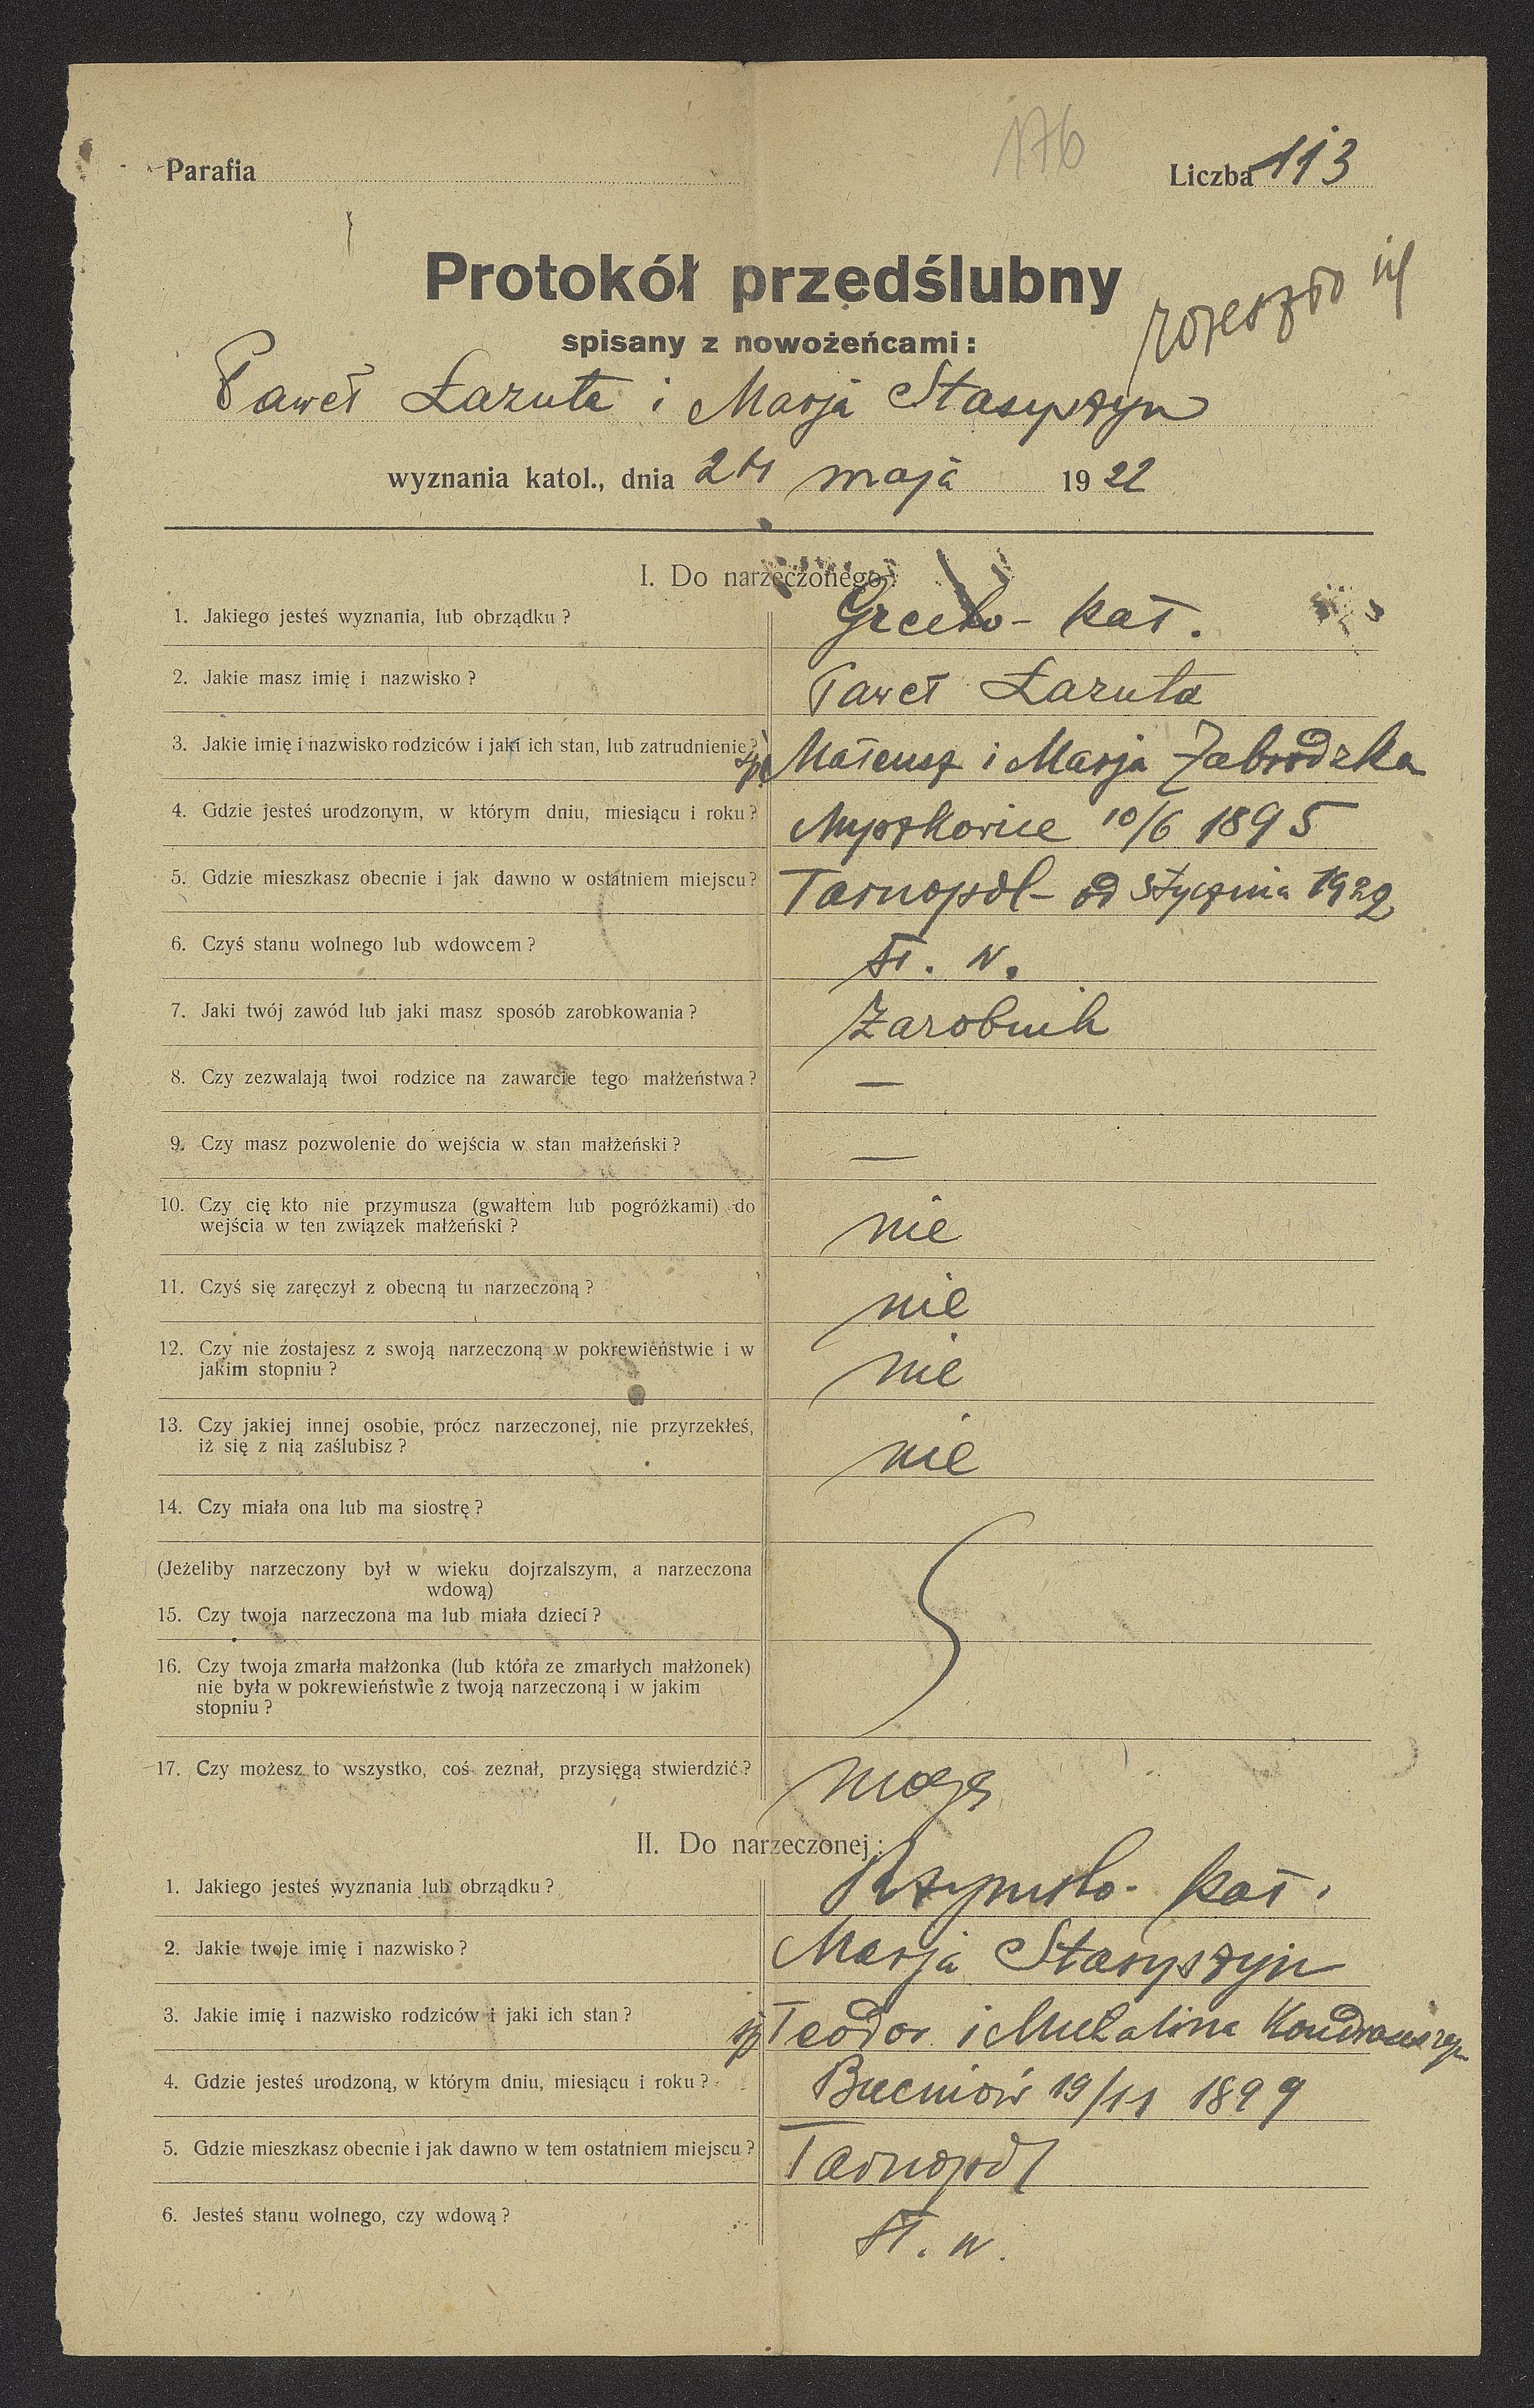 176
Parafia Liczba 113
Protokół przedślubny
rozeszło się
spisany z nowożeńcami:
Paweł Łazuta i Marja Stasyszyn
wyznania katol., dnia 24 maja 1922
I. Do narzeczonego:
1. Jakiego jesteś wyznania, lub obrządku? Grecko-kat.
2. Jakie masz imię i nazwisko? Paweł Łazuta
3. Jakie imię i nazwisko rodziców i jaki ich stan, lub zatrudnienie? Mateusz i Marja Zabrodzka
4. Gdzie jesteś urodzonym, w którym dniu, miesiącu i roku? Myszkowice 10/6 1895
5. Gdzie mieszkasz obecnie i jak dawno w ostatniem miejscu? Tarnopol - od stycznia 1922
6. Czyś stanu wolnego lub wdowcem? st. w.
7. Jaki twój zawód lub jaki masz sposób zarobkowania? Zarobnik
8. Czy zezwalają twoi rodzice na zawarcie tego małżeństwa? —
9. Czy masz pozwolenie do wejścia w stan małżeński? —
10. Czy cię kto nie przymusza (gwałtem lub pogróżkami) do
wejścia w ten związek małżeński? nie
11. Czyś się zaręczył z obecną tu narzeczoną? nie
12. Czy nie zostajesz z swoją narzeczoną w pokrewieństwie i w
jakim stopniu? nie
13. Czy jakiej innej osobie, prócz narzeczonej, nie przyrzekłeś,
iż się z nią zaślubisz? nie
14. Czy miała ona lub ma siostrę?
(Jeżeliby narzeczony był w wieku dojrzalszym, a narzeczona
wdową)
15. Czy twoja narzeczona ma lub miała dzieci?
16. Czy twoja zmarła małżonka (lub która ze zmarłych małżonek)
nie była w pokrewieństwie z twoją narzeczoną i w jakim
stopniu?
17. Czy możesz to wszystko, coś zeznał, przysięgą stwierdzić? mogę
II. Do narzeczonej:
1. Jakiego jesteś wyznania lub obrządku? Rzymsko-kat.
2. Jakie twoje imię i nazwisko? Marja Stasyszyn
3. Jakie imię i nazwisko rodziców i jaki ich stan? Teodor i Michalina
4. Gdzie jesteś urodzoną, w którym dniu, miesiącu i roku? Bucniów 19/11 1899
5. Gdzie mieszkasz obecnie i jak dawno w tem ostatniem miejscu? Tarnopol
6. Jesteś stanu wolnego, czy wdową? st. w.